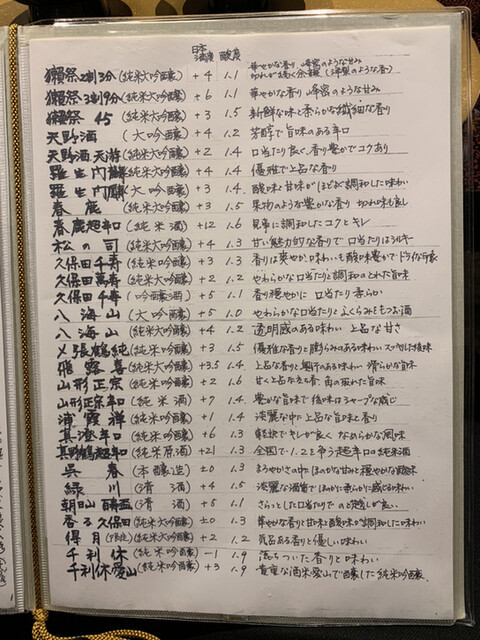 日本酒度 酸度
獺祭2割3分 (純米大吟醸) +4 1.1 華やかな香り 蜂蜜のような甘み
切れが続く余韻
獺祭3割9分 (純米大吟醸) +6 1.1 華やかな香り 蜂蜜のような甘み
獺祭 45 (純米大吟醸) +3 1.5 新鮮な味と柔らかな繊細な香り
天野酒 (大吟醸) +4 1.2 芳醇で旨味のある辛口
天野酒 (純米大吟醸) +2 1.4 口当たり良く、香り豊かでコクあり
羅生門 (純米大吟醸) +4 1.4 優雅で上品な香り
羅生門 (大吟醸) +3 1.4 酸味と甘味がほどよく調和した味わい
春鹿 (純米大吟醸) +3 1.5 果物のような芳香 切れ味も良し
春鹿超辛口 (純米酒) +12 1.6 見事に調和したコクとキレ
松の司 (純米吟醸) +4 1.3 甘い魅力的な香りで口当たりはシルキー
久保田千寿 (純米吟醸) +3 1.3 香りは爽やか、味わいも酸味豊かで
久保田萬寿 (純米大吟醸) +2 1.2 やわらかな口当たりと調和のとれた旨味
久保田千寿 (吟醸酒) +5 1.1 香り穏やかに 口当たり柔らか
八海山 (大吟醸) +5 1.0 やわらかな口当たりと ふくらみをもつお酒
八海山 (純米吟醸) +4 1.2 透明感のある味わい 上品な甘さ
〆張鶴純 (純米吟醸) +3 1.5 優雅な香りと膨らみのある味わい スッキリした後味
飛露喜 (純米大吟醸) +3.5 1.4 上品な香りと奥行のある味わい 滑らかな旨味
山形正宗 (純米吟醸) +2 1.6 甘く上品な立ち香
山形正宗辛口 (純米酒) +7 1.4 豊かな旨味で後味はシャープな感じ
浦霞禅 (純米吟醸) +1 1.4 淡麗な中に上品な旨味と香り
真澄辛口 (純米吟醸) +6 1.3 軽快でキレが良く なめらかな風味
真野鶴超辛口 (純米原酒) +21 1.3 全国で1.2を争う超辛口の純米酒
呉春 (本醸造) ±0 1.3 まろやかさの中 ほのかな甘みと穏やかな酸味
緑川 (清酒) +4 1.5 淡麗な清酒でほのかに柔らかに感じる味わい
朝日山 (清酒) +5 1.1 さらっとした口当たりで のど越しが良い
香る久保田 (純米大吟醸) ±0 1.3 華やかな香りと甘味と酸味が調和した味わい
得月 (純米大吟醸) +2 1.2 気品ある香りと優しい味わい
千利休 (純米吟醸) -1 1.9 落ちついた香りと味わい
千利休愛山 (純米吟醸) +3 1.9 貴重な酒米愛山で醸した純米吟醸